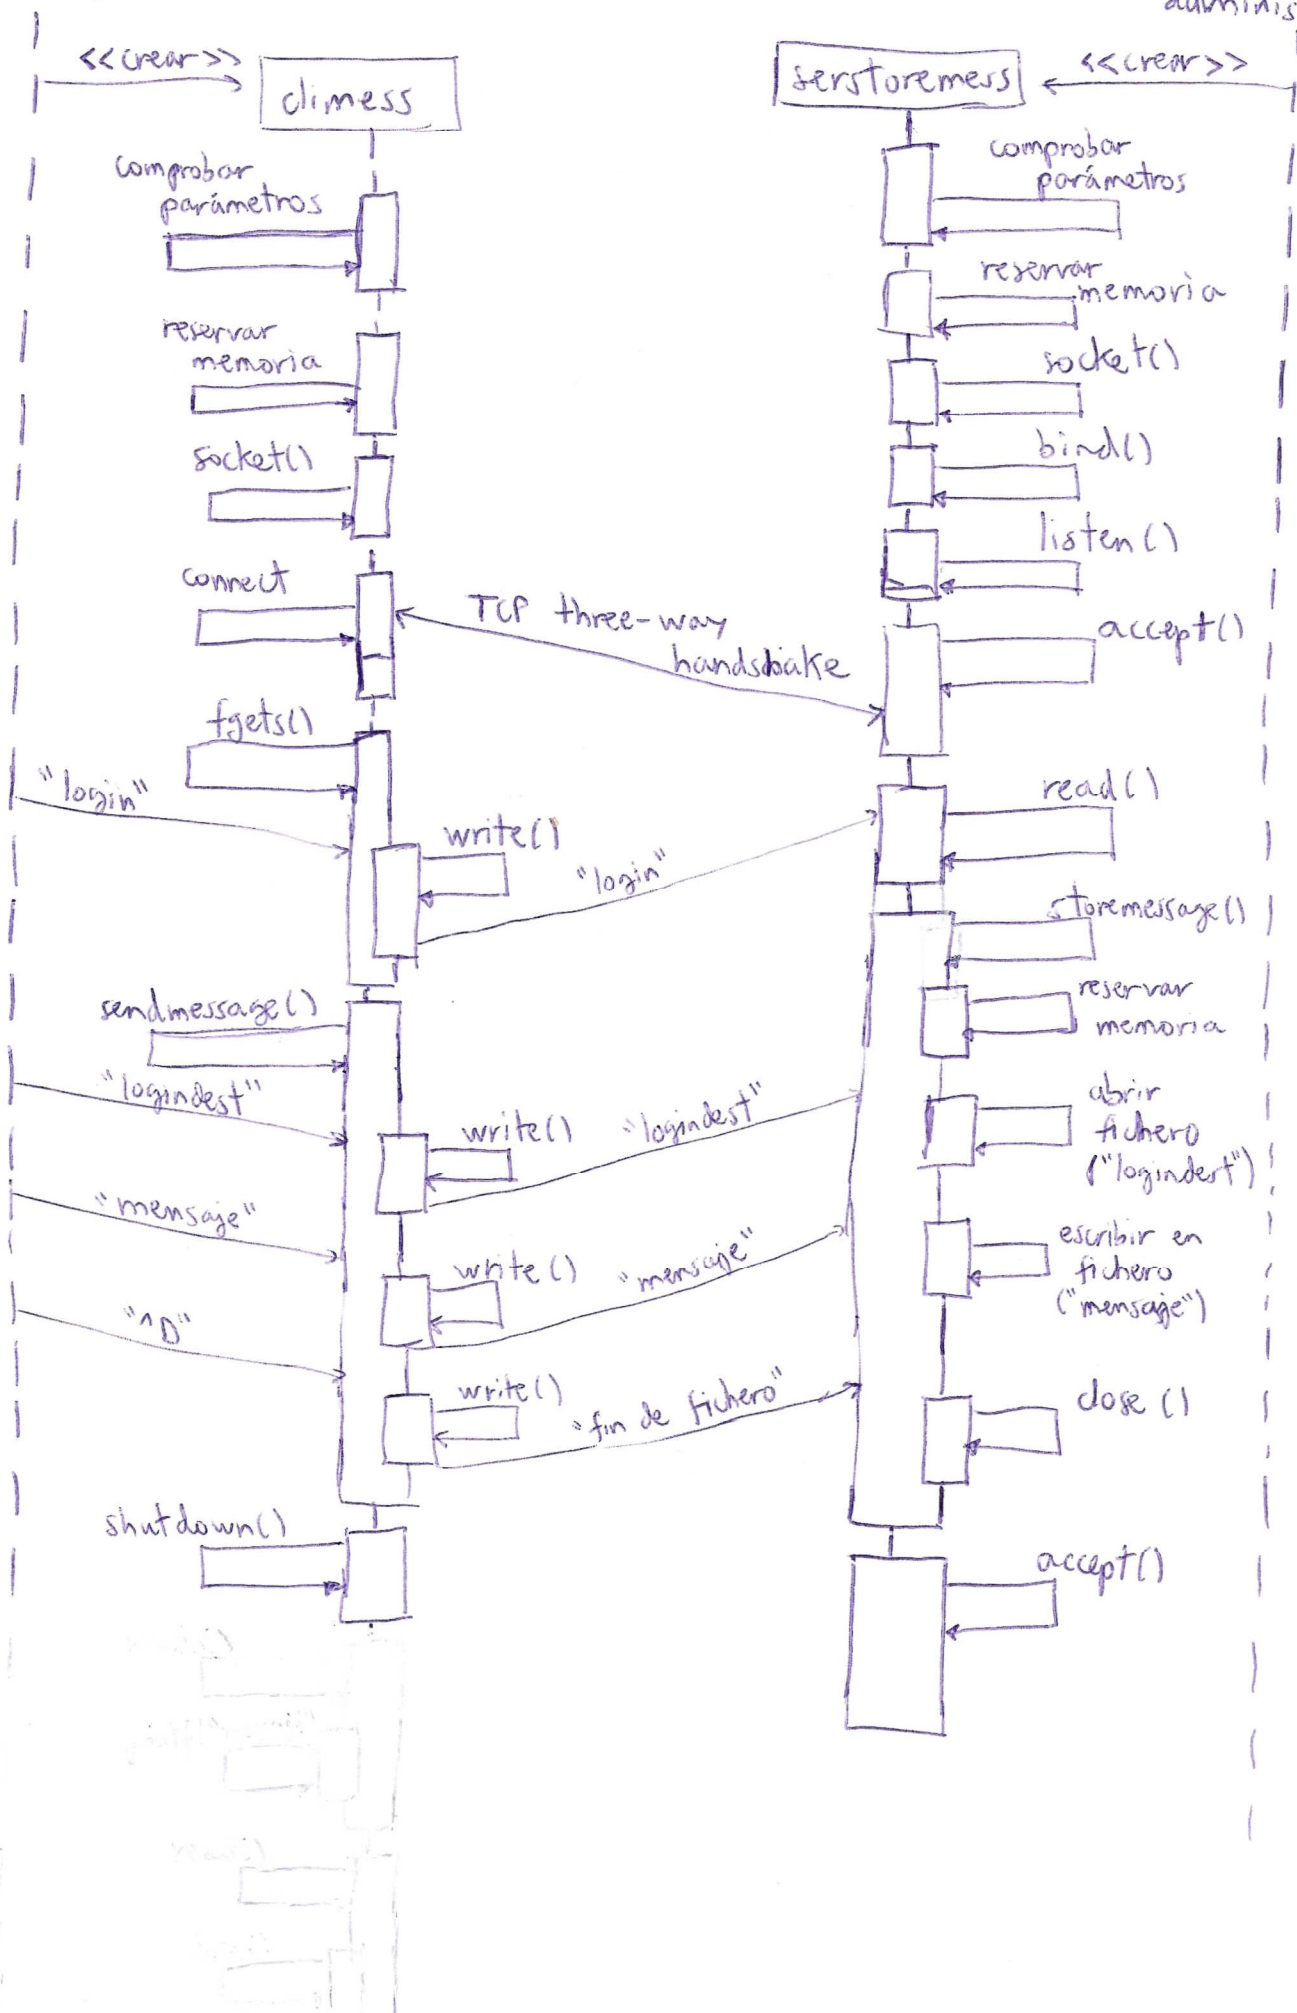 <<crear>>
climess
comprobar
parámetros
reservar
memoria
socket()
connect
fgets()
"login"
write()
"login"
sendmessage()
"logindest"
write()
"logindest"
"mensaje"
write()
"mensaje"
"^D"
write()
"fin de fichero"
shutdown()
TCP three-way
handshake
adminis
serstoremess
<<crear>>
comprobar
parámetros
reservar
memoria
socket()
bind()
listen()
accept()
read()
storemessage()
reservar
memoria
abrir
fichero
("logindest")
escribir en
fichero
("mensaje")
close()
accept()